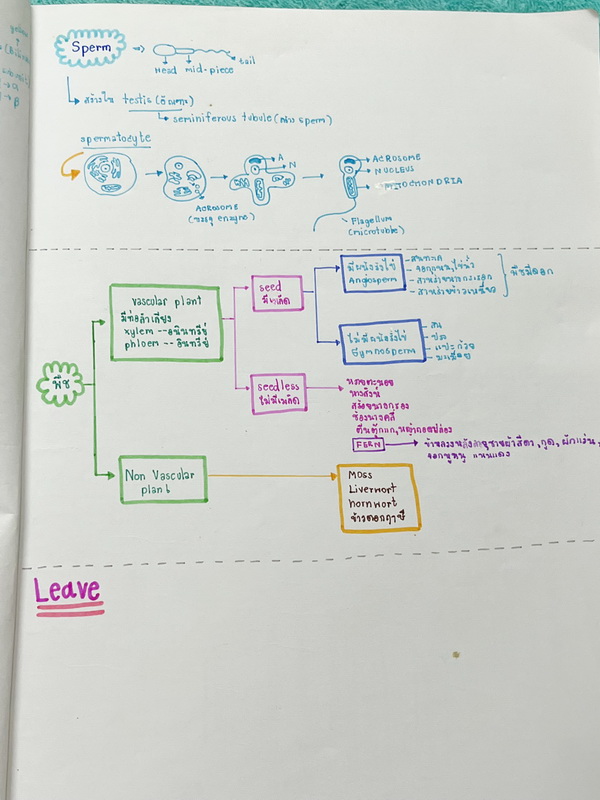 Sperm
Head mid-piece tail
สร้างใน testis (อัณฑะ)
seminiferous tubule (สร้าง sperm)
spermatocyte
ACROSOME
(บรรจุ enzyme)
A
N
ACROSOME
NUCLEUS
MITOCHONDRIA
Flagellum
(microtubule)
พืช
vascular plant
มีท่อลำเลียง
xylem -- อนินทรีย์
phloem -- อินทรีย์
seed
มีเมล็ด
มีผนังรังไข่
Angiosperm
- สนทะเล
- จอกหูหนู, ไข่น้ำ
- สาหร่ายหางกระรอก
- สาหร่ายข้าวเหนียว
พืชมีดอก
ไม่มีผนังรังไข่
Gymnosperm
- สน
- ปรง
- แปะก๊วย
- มะเมื่อย
seedless
ไม่มีเมล็ด
หวายทะนอย
หางสิงห์
สร้อยนางกรอง
ช้องนางคลี่
ตีนตุ๊กแก, หญ้าถอดปล้อง
FERN
ข้าหลวงหลังลาย, ชายผ้าสีดา, กูด, ผักแว่น,
จอกหูหนู แหนแดง
Non Vascular
plant
Moss
Liverwort
hornwort
ข้าวตอกฤาษี
Leave